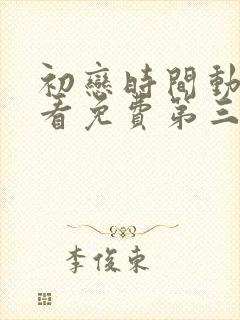 初戀時間動
看免費第三
李俊東